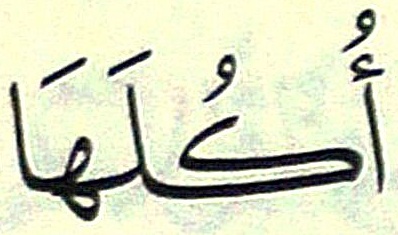 أُكُلَهَا